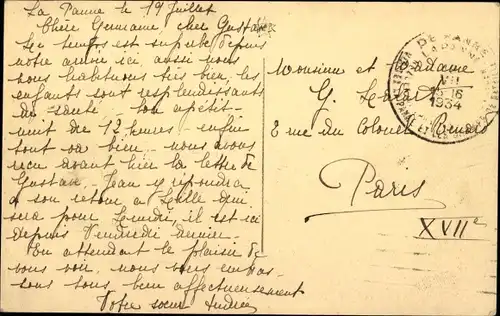 La Panne le 19 Juillet
Chère Germaine, cher Gustave
Le temps est superbe depuis
notre arrivée ici, aussi nous
nous habituons très bien, les
enfants sont resplendissants
de santé, bon apétit,
nuit de 12 heures, enfin
tout va bien. nous avons
reçu avant hier la lettre de
Gustave, Jean y répondra
à son retour à Lille qui
sera pour Lundi, il est ici
depuis Vendredi dernier.
En attendant le plaisir de
vous voir, nous vous embras-
sons tous bien affectueusement
Votre sœur Andrée
Monsieur et Madame
G.
2 rue du Colonel
Paris
XVIIe
DE PANNE
LA PANNE
VII
16
1934